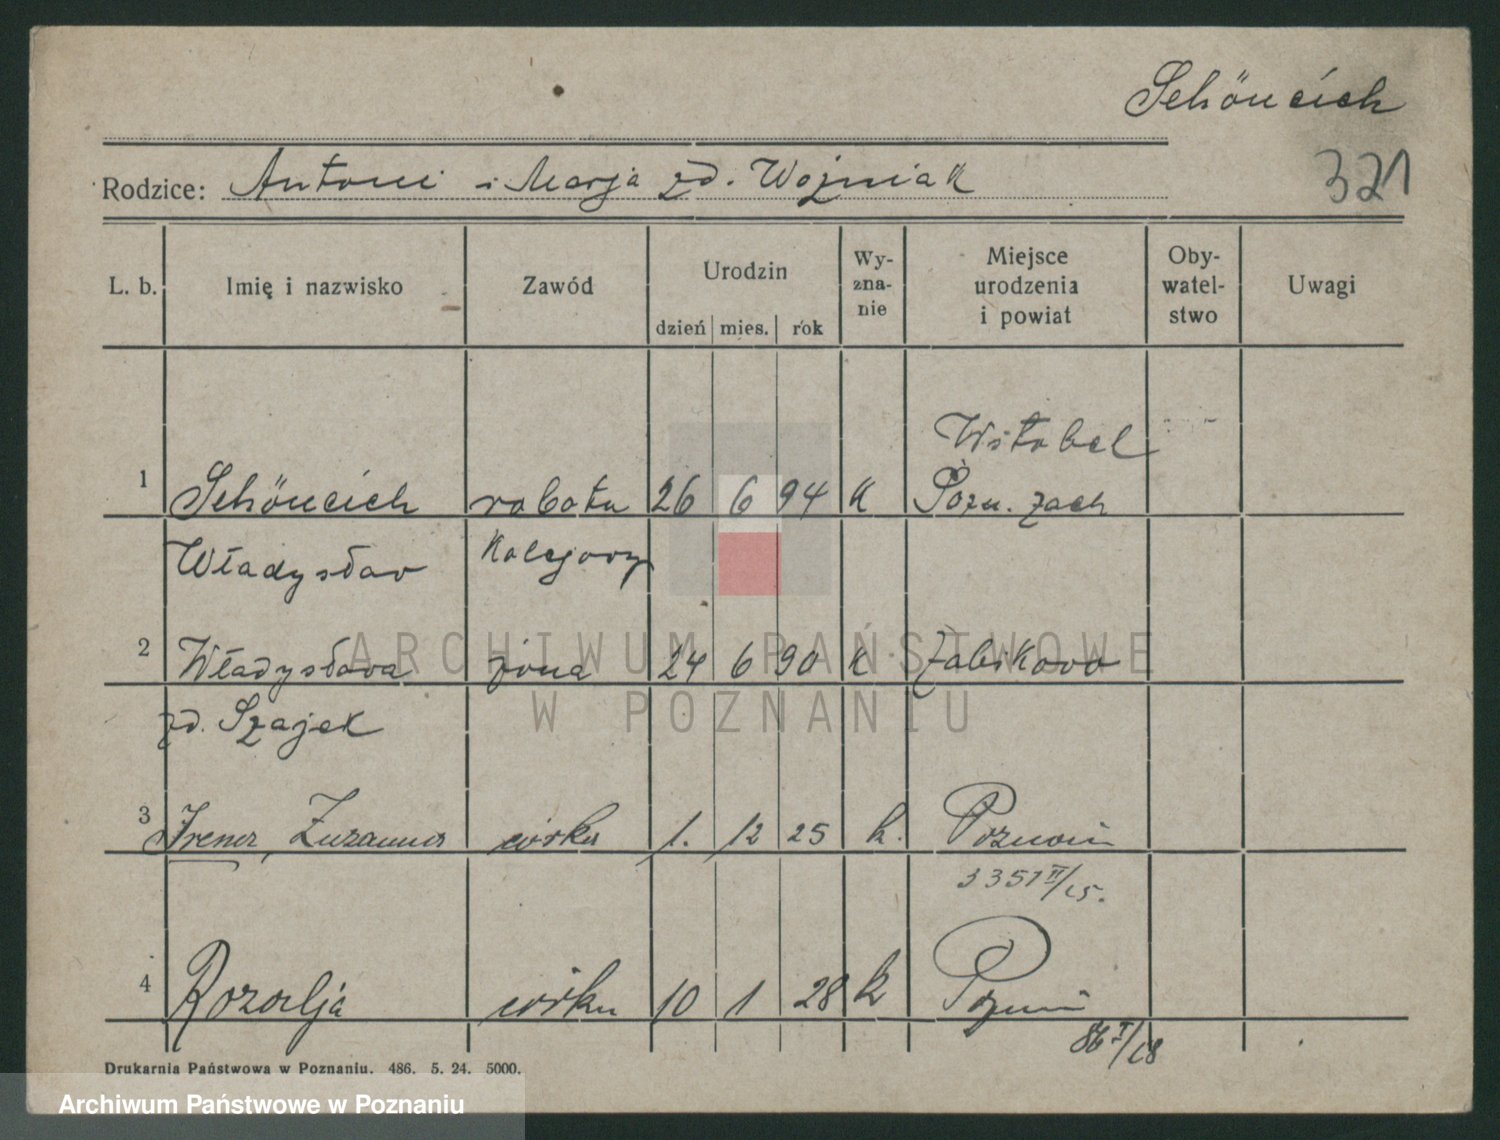 Schöneich
321
Rodzice: Antoni i Marja zd. Woźniak
L. b. Imię i nazwisko Zawód Urodzin dzień mies. rok Wy-zna-nie Miejsce urodzenia i powiat Oby-watel-stwo Uwagi
Wstobel
1 Schöneich robotn 26 6 94 K Pozn. zach
Władysław Kolejowy
2 Władysława żona 24 6 90 K Żabikowo
zd. Szajek
3 Irena, Zuzanna córka 1. 12 25 k. Poznań
3351 II/25.
4 Rozalja córka 10 1 28 k Poznań
86 I/28
Drukarnia Państwowa w Poznaniu. 486. 5. 24. 5000.
ARCHIWUM PAŃSTWOWE
W POZNANIU
Archiwum Państwowe w Poznaniu